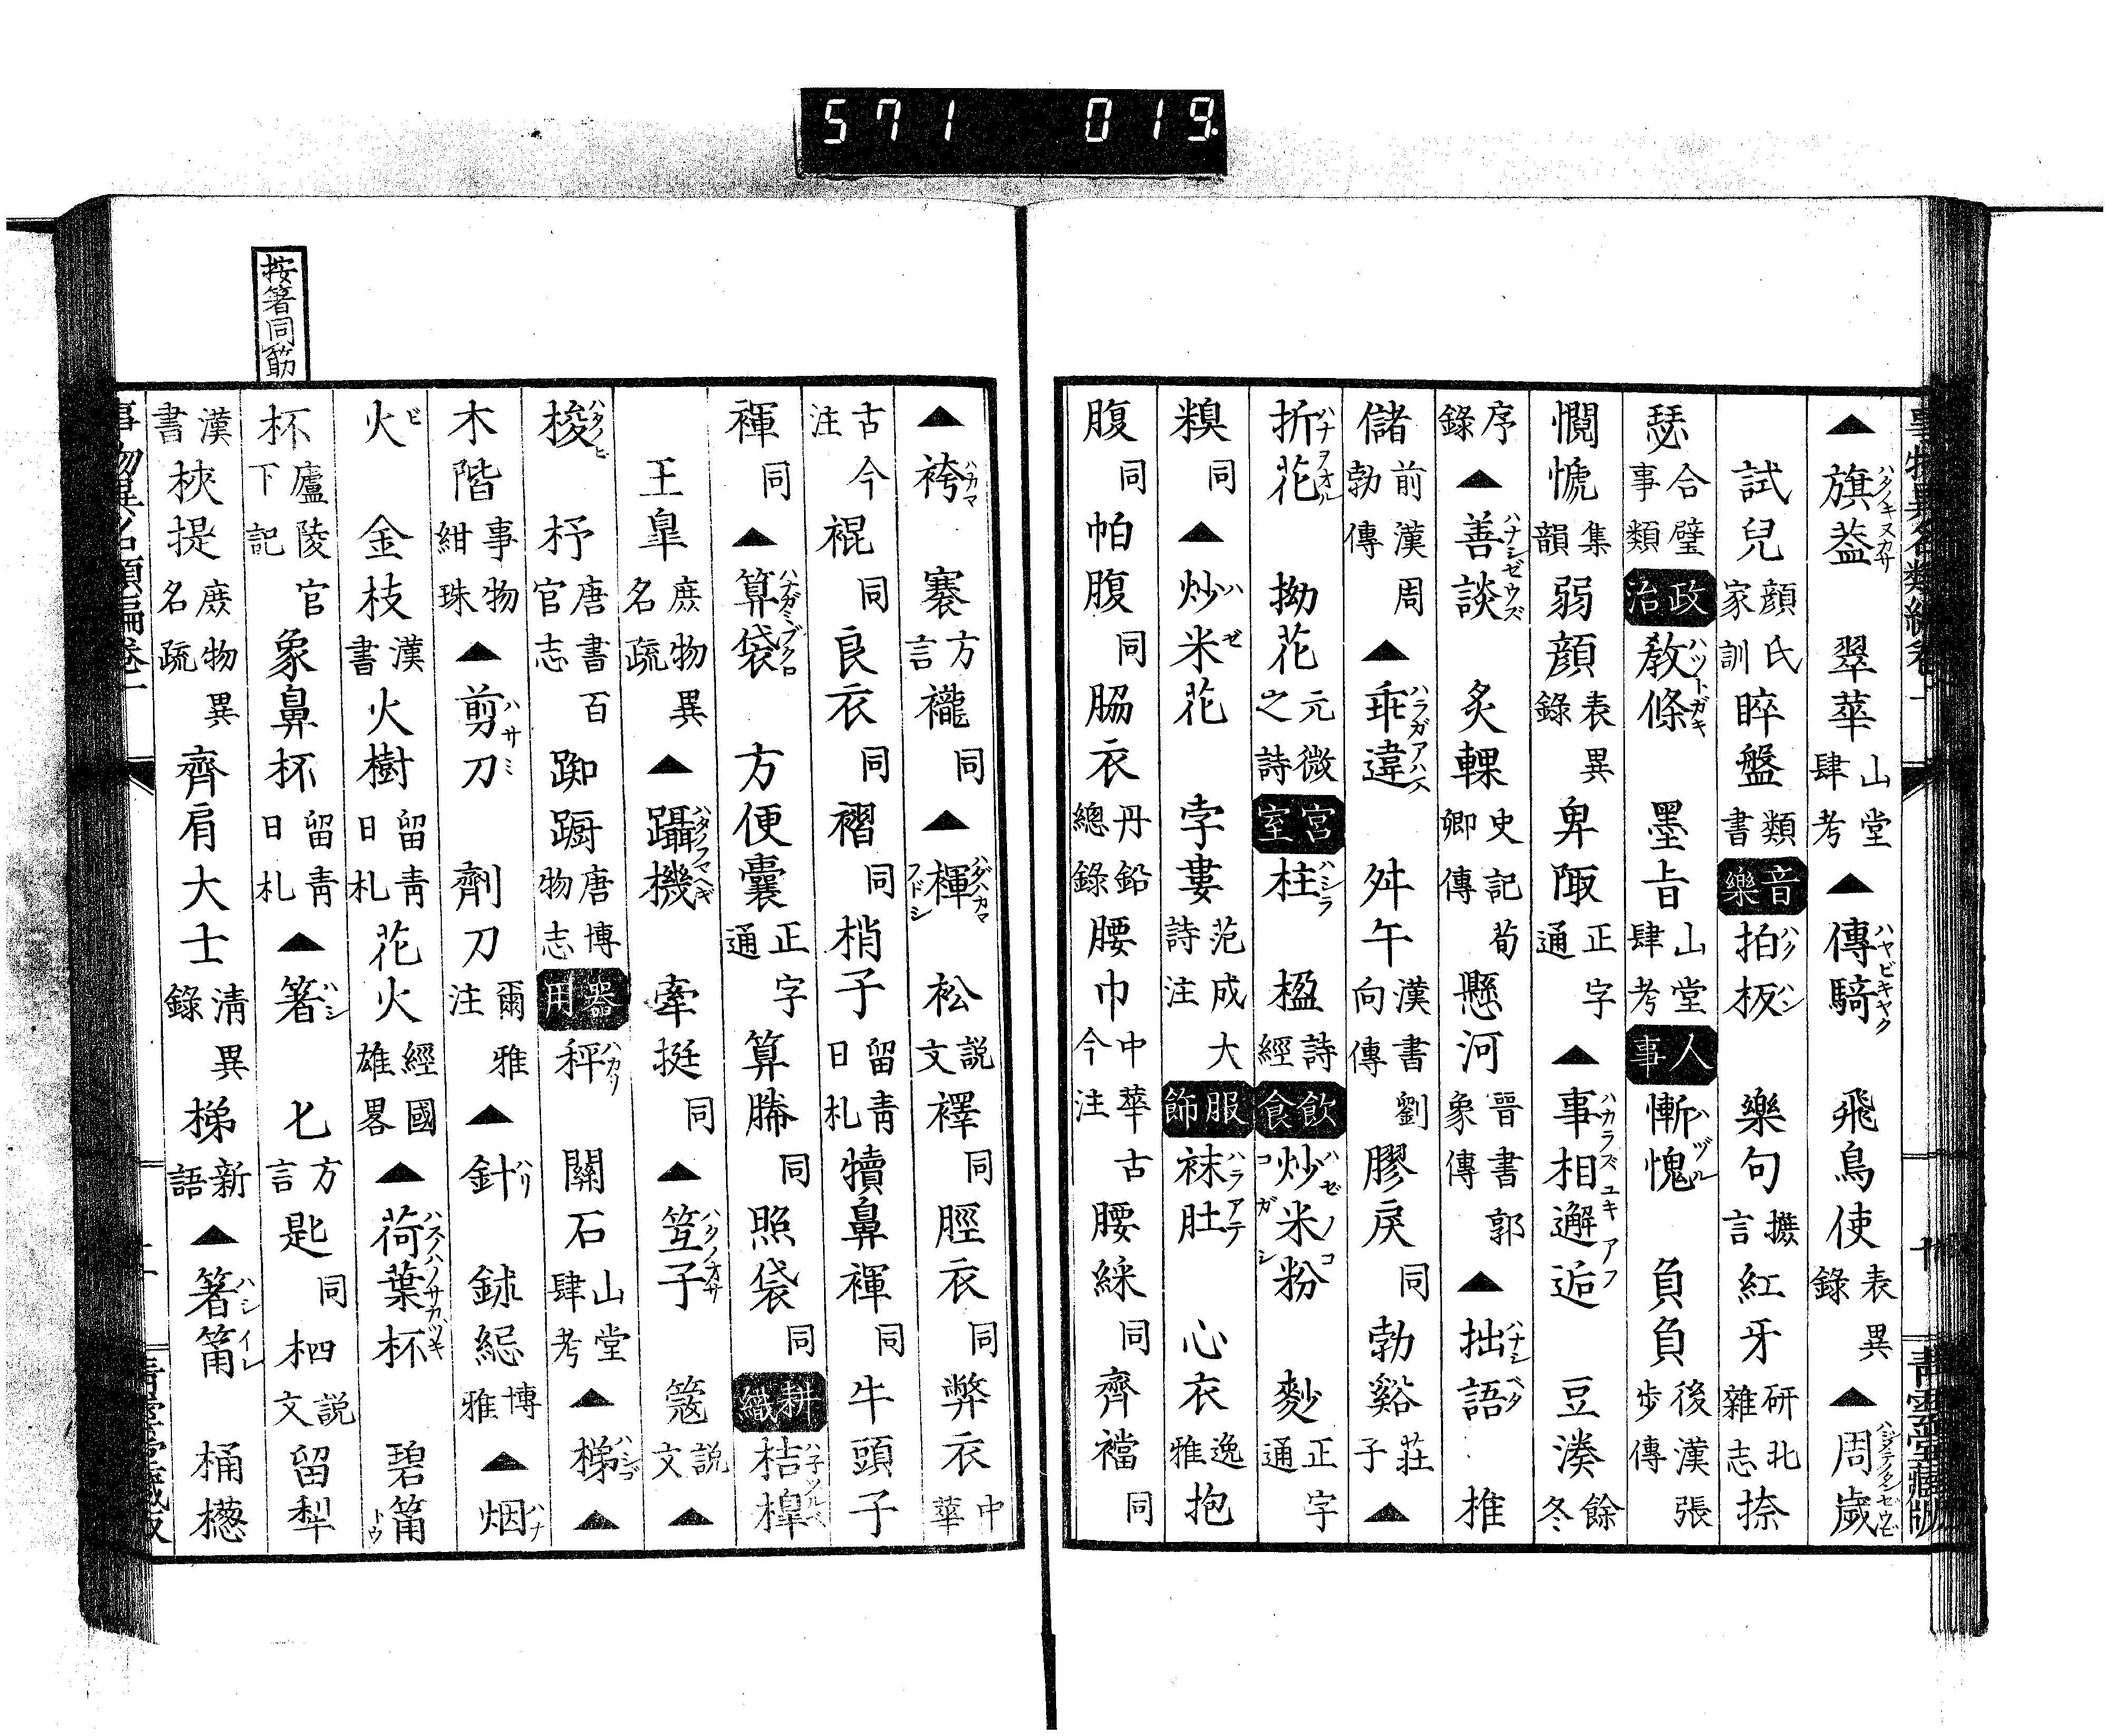 571 019
▲旗蓋ハタノキヌカサ 翠華山堂肆考▲傳騎ハヤビキヤク 飛鳥使表異錄▲周歲
試兒顔氏家訓晬盤類書 音樂 拍板 樂句摭言紅牙研北雜志捺
瑟合璧事類 政治 教條ハツトガキ 墨旨山堂肆考 人事 慚愧ハヅル 負負後漢張步傳
憪怳集韻弱顔表異錄卑陬正字通▲事相邂逅ハカラズユキアフ 豆湊餘冬
序錄▲善談ハナシゼウズ 炙輠史記荀卿傳懸河晉書郭象傳▲拙語ハナシベタ 推
儲前漢周勃傳▲乖違ハラガアハズ 舛午漢書劉向傳膠戾同勃谿莊子▲
折花ハナヲオル 拗花元微之詩 宮室 柱ハシラ 楹詩經 飲食 炒米粉ハゼノコ コガシ 麨正字通
糗同▲炒米ハゼ花 孛婁范成大詩注 服飾 袜肚ハラアテ 心衣逸雅抱
腹同帕腹同脇衣丹鉛總錄腰巾中華古今注腰綵同齊襠同
▲袴ハカマ 褰方言襱同▲褌ハダハカマ フドシ 衳說文襗同脛衣同弊衣中華
古今注裩同良衣同褶同梢子留青日札犢鼻褌同牛頭子
褌同▲算袋ハナガミブクロ 方便囊正字通算縢同照袋同 耕織 桔槹ハネツルベ
王皐庶物異名疏▲躡機 牽挺同▲筀子ハタノオサ 簆說文▲
梭ハタノヒ 杼唐書百官志踟躕唐博物志 器用 秤ハカリ 關石山堂肆考▲梯ハシゴ▲
木階事物紺珠▲剪刀ハサミ 劑刀爾雅注▲針ハリ 鉥䋟博雅▲烟ハナ
火ビ 金枝漢書火樹留青日札花火經國雄畧▲荷葉杯ハスノハノサカヅキ 碧筩トウ
杯廬陵官下記象鼻杯留青日札▲箸ハシ 匕方言匙同柶說文留犁
漢書梜提庶物異名疏齊肩大士清異錄梯新語▲箸筩ハシイレ 桶檧
按箸同筯